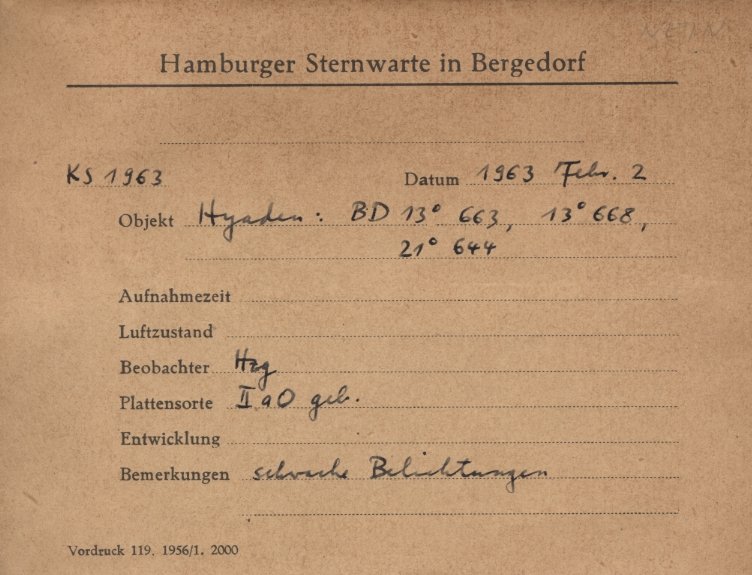 Hamburger Sternwarte in Bergedorf
KS 1963 Datum 1963 Febr. 2
Objekt Hyaden: BD 13° 663, 13° 668,
21° 644
Aufnahmezeit
Luftzustand
Beobachter Hzg
Plattensorte II a O geb.
Entwicklung
Bemerkungen schwache Belichtungen
Vordruck 119. 1956/1. 2000